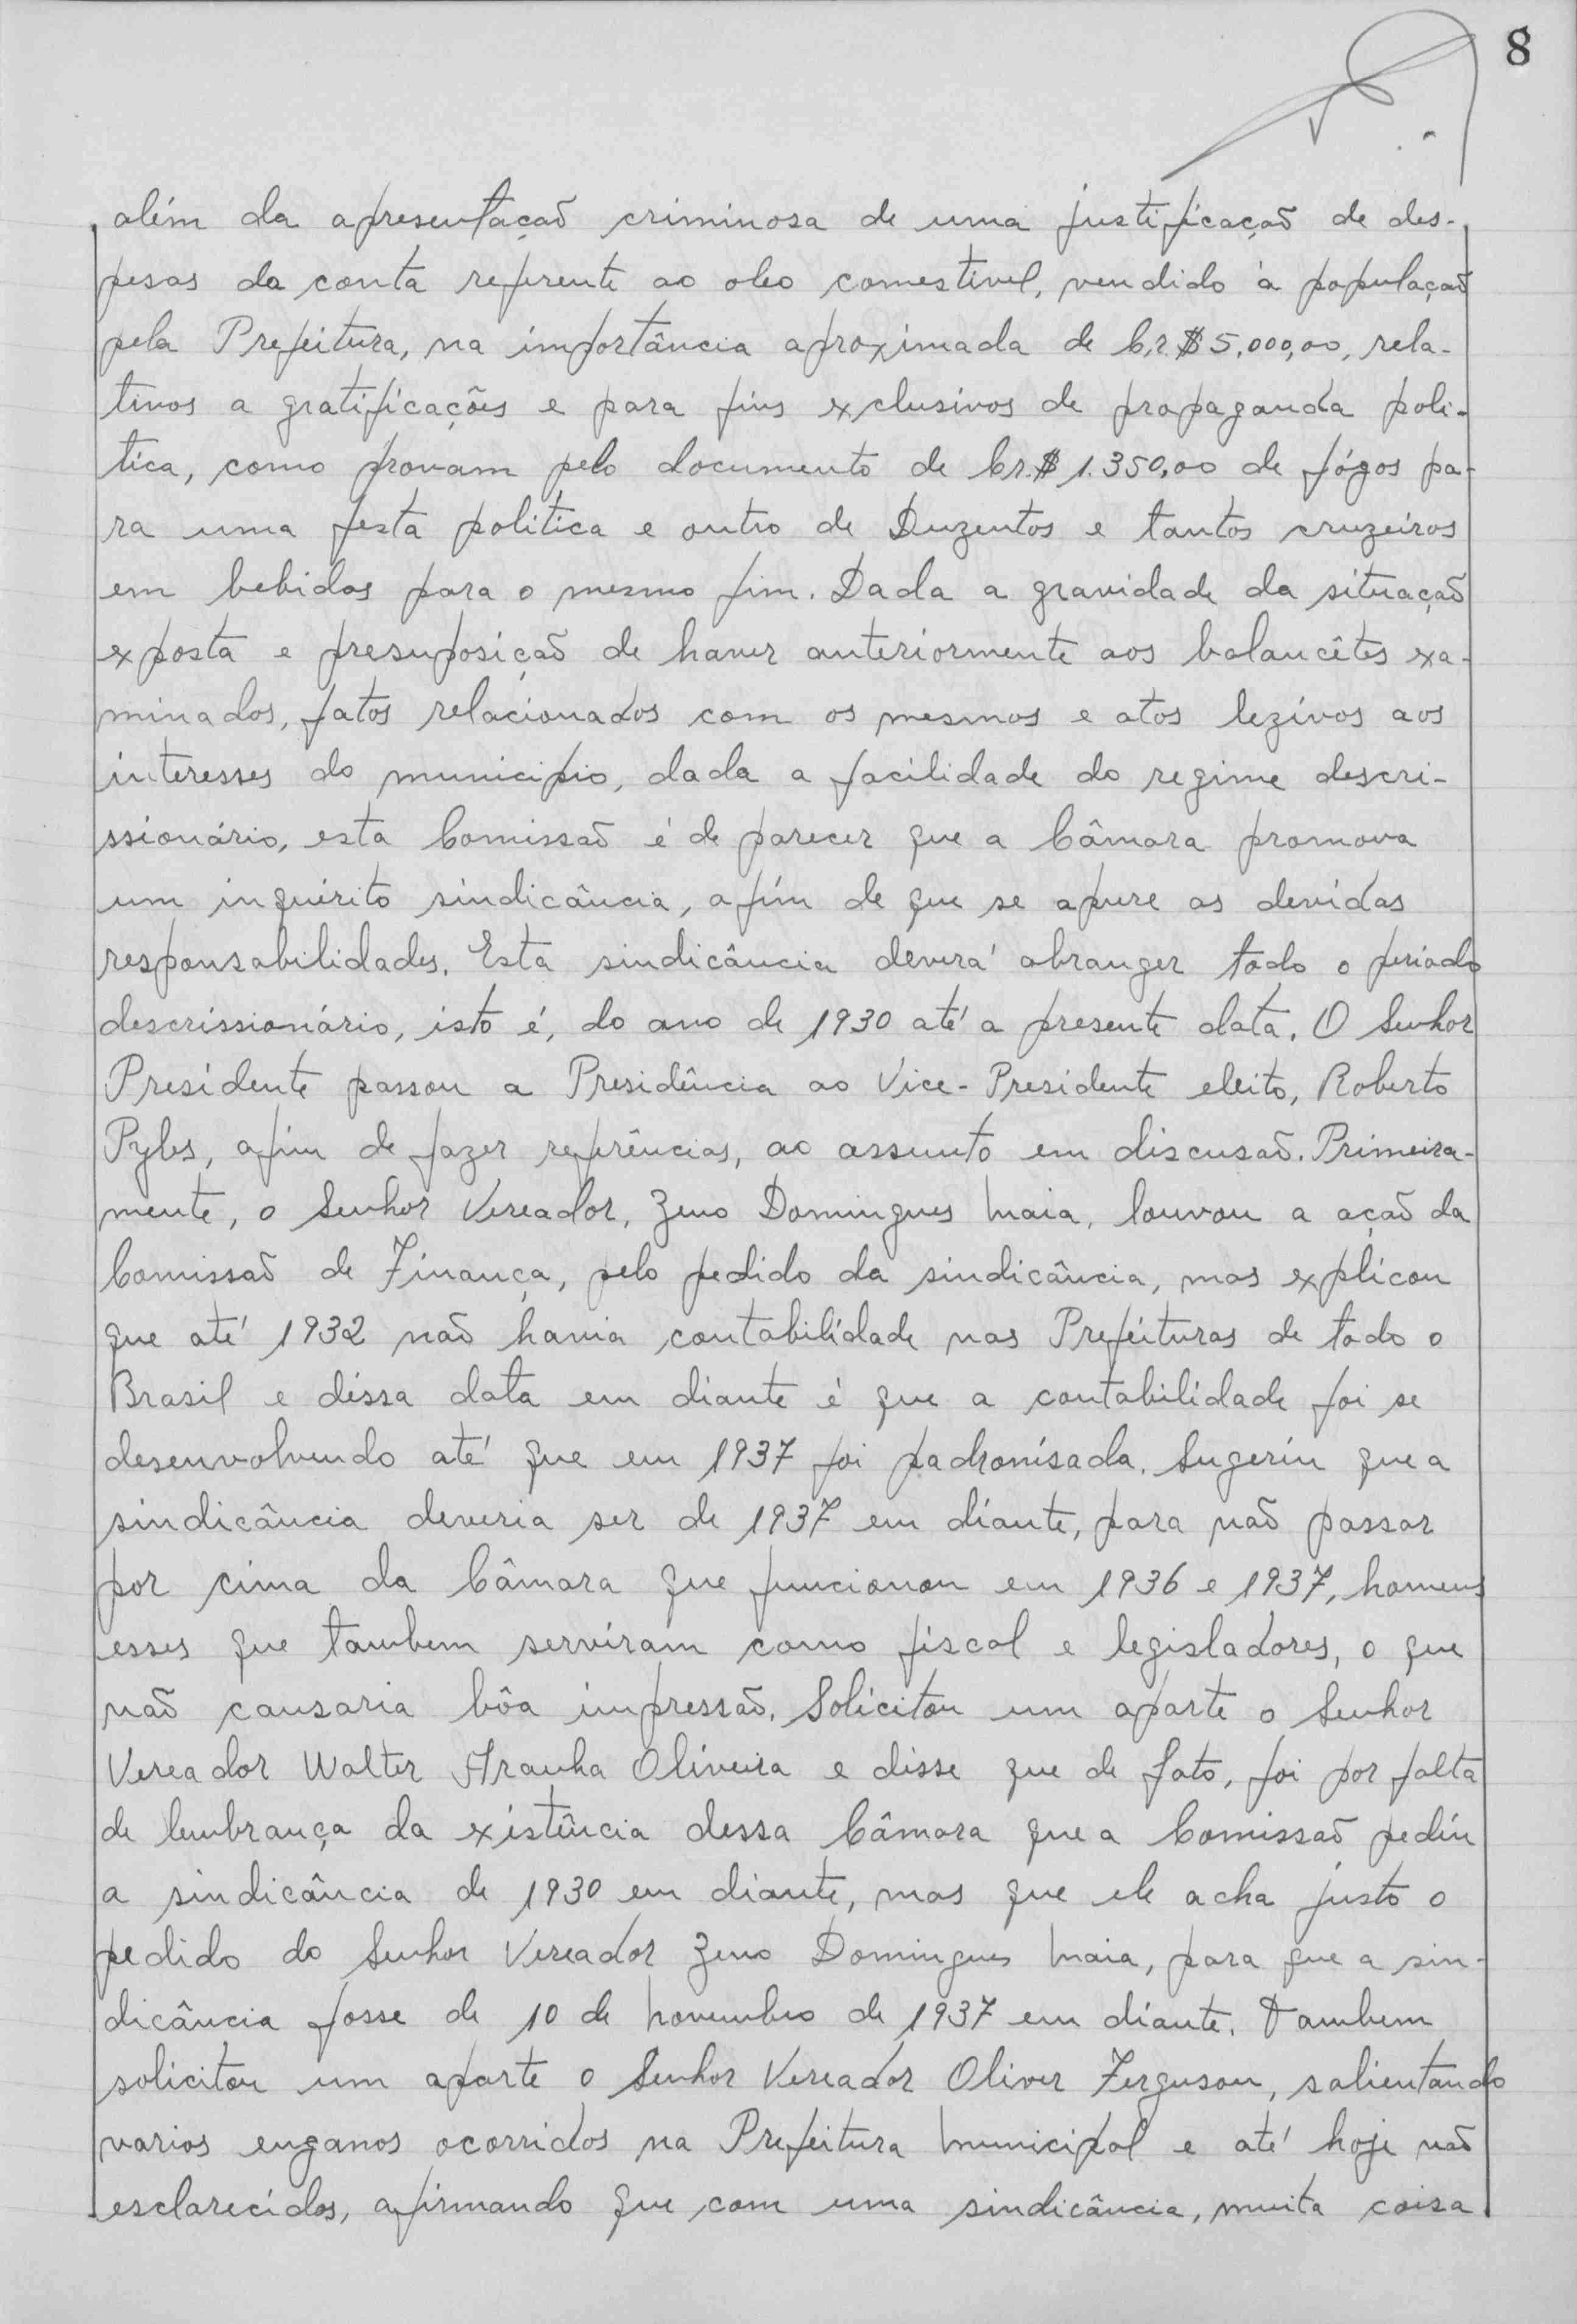 8
além da apresentação criminosa de uma justificação de des-
pesas da conta referente ao oleo comestivel, vendido à população
pela Prefeitura, na importância aproximada de Cr.$ 5.000,00, rela-
tivos a gratificações e para fins exclusivos de propaganda poli-
tica, como provam pelo documento de Cr.$ 1.350,00 de fógos pa-
ra uma festa politica e outro de Duzentos e tantos cruzeiros
em bebidas para o mesmo fim. Dada a gravidade da situação
exposta e presuposição de haver anteriormente aos balancêtes exa-
minados, fatos relacionados com os mesmos e atos lezivos aos
interesses do municipio, dada a facilidade do regime descri-
ssionário, esta Comissão é de parecer que a Câmara promova
um inquérito sindicância, afim de que se apure as devidas
responsabilidades. Esta sindicância deverá abranger todo o periodo
descrissionário, isto é, do ano de 1930 até a presente data. O Senhor
Presidente passou a Presidência ao Vice-Presidente eleito, Roberto
Pyles, afim de fazer referências, ao assunto em discusão. Primeira-
mente, o Senhor Vereador, Zeno Domingues Maia, louvou a ação da
Comissão de Finança, pelo pedido da sindicância, mas explicou
que até 1932 não havia contabilidade nas Prefeituras de todo o
Brasil e dessa data em diante é que a contabilidade foi se
desenvolvendo até que em 1937 foi padronisada. Sugeriu que a
sindicância deveria ser de 1937 em diante, para não passar
por cima da Câmara que funcionou em 1936 e 1937, homens
esses que tambem serviram como fiscal e legisladores, o que
não causaria bôa impressão. Solicitou um aparte o Senhor
Vereador Walter Aranha Oliveira e disse que de fato, foi por falta
de lembrança da existência dessa Câmara que a Comissão pediu
a sindicância de 1930 em diante, mas que ele acha justo o
pedido do Senhor Vereador Zeno Domingues Maia, para que a sin-
dicância fosse de 10 de Novembro de 1937 em diante. Tambem
solicitou um aparte o Senhor Vereador Oliver Ferguson, salientando
varios enganos ocorridos na Prefeitura Municipal e até hoje não
esclarecidos, afirmando que com uma sindicância, muita coisa